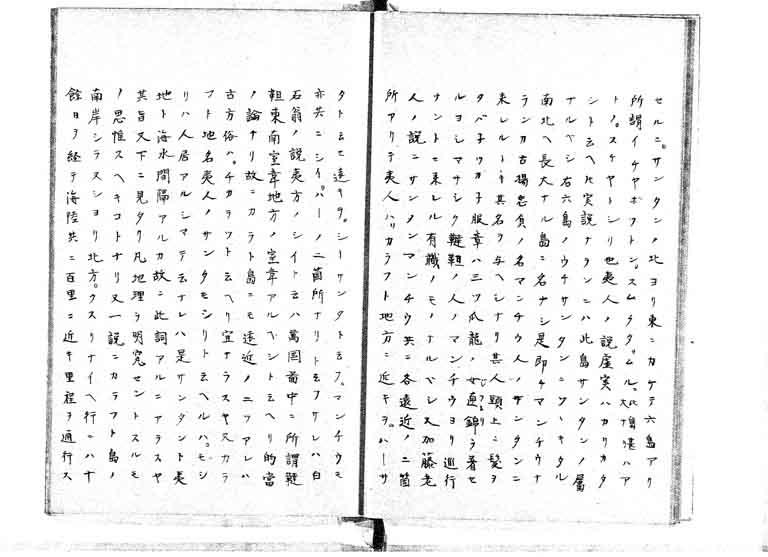 セルニ。サンタンノ北ヨリ東ニカケテ六島アリ
所謂イチヤボフトン。スムラタ ムル。 大塲湛ハア
トノ。スチヤトシリ也夷人ノ說虚実ハカリカタ
シト云ヘ𪜈実說ナランニハ此島サンタンノ属
ナルベシ右六島ノウチサンタンニツヽキタル
南北ヘ長大ナル島ニ名ナシ是即チマンチウナ
ランカ古楊忠貞ノ名マンチウ人ノサンタンニ
来レルト𪜈其名ヲ与ヘシナリ其人頭上ニ髪ヲ
タバ子ツカ子服章ハ三ツ爪龍ノ女迎錦ヲ着セ
ルヨシマサシク韃靼ノ人ノマンチウヨリ巡行
ナントニ来レル有職ノモノナルベシ又加藤老
人ノ說ニサンタンマンチウ共ニ各遠近ノニ箇
所アリテ夷人ハカラフト地方ニ近キヲ。ハーサ
タト云セ遠キヲ。シーサンタト云フ。マンチウモ
亦共ニシイ。パーノ二箇所ナリト云フサレハ白
石翁ノ說夷方ノシイト云ハ萬国畨中ニ所謂韃
靼東南室韋地方ノ室韋アルベシト云ヘリ的當
ノ論ナリ故ニカラト島ニモ遠近ノ二ツアレハ
古方俗ハ。チカラフト云ヘリ宜ナラスヤ又カラ
フト地名夷人ノサンタモシリト云ヘルハ。モシ
リハ人居アルシマテ云ナレハ是サンタント夷
地ト海水間隔アルカ故ニ此詞アルニアラスヤ
其旨又下ニ見タリ凡地理ヲ明究セントスルモ
ノ思惟スヘキコトナリ又一說ニカラフト島ノ
南岸シラスシヨリ北方。クスリナイヘ行ニハナ
餘日ヲ経テ海陸共ニ百里ニ近キ里程ヲ通行ス